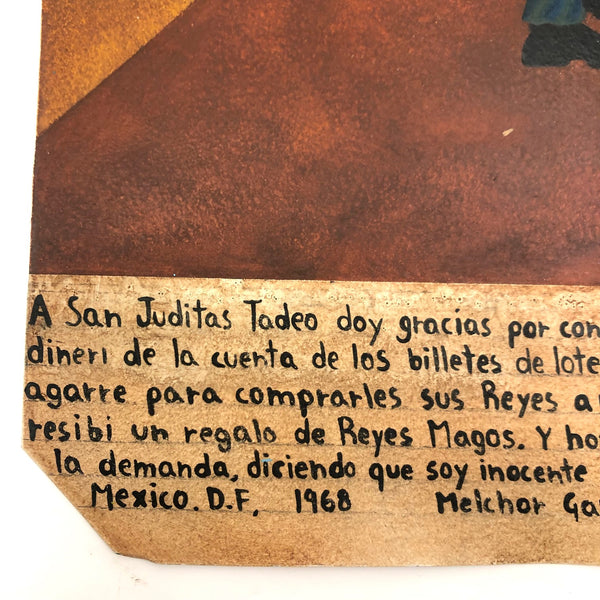 A San Juditas Tadeo doy gracias por con
dineri de la cuenta de los billetes de lote
agarre para comprarles sus Reyes a
resibi un regalo de Reyes Magos. Y ho
la demanda, diciendo que soy inocente
Mexico. D.F, 1968 Melchor Ga